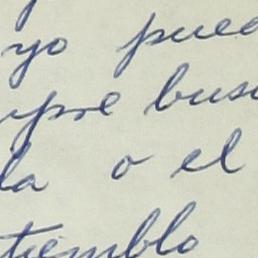 yo pued
mpre busc
la o el
tiemblo